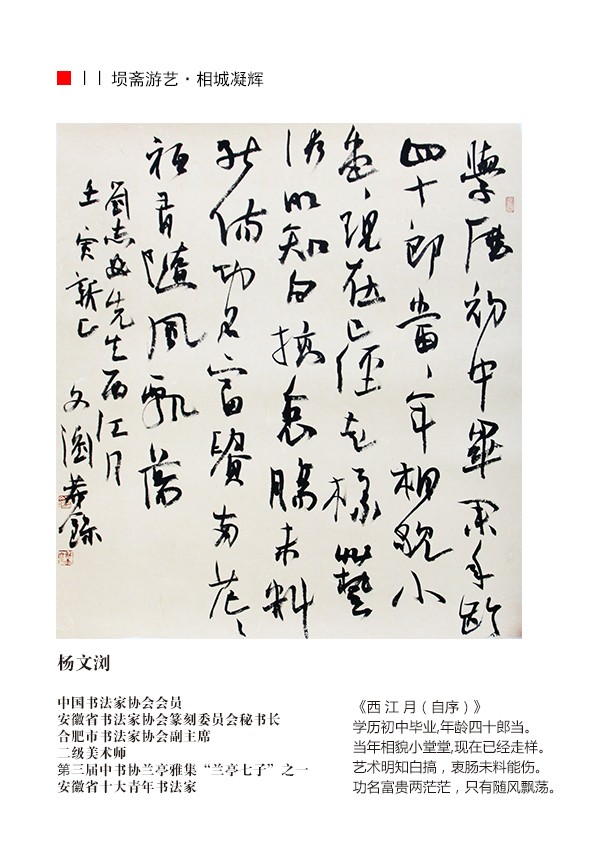 埙斋游艺·相城凝辉
學歷初中畢業年齡
四十郎當、年相貌小
堂、現在已經走樣藝
術明知白搞衷腸未料
能傷功名富貴兩茫、
祗有隨風飄蕩
劉志先生西江月
壬寅新正
文瀏恭錄
杨文浏
中国书法家协会会员
安徽省书法家协会篆刻委员会秘书长
合肥市书法家协会副主席
二级美术师
第三届中书协兰亭雅集“兰亭七子”之一
安徽省十大青年书法家
《西 江 月（自序）》
学历初中毕业,年龄四十郎当。
当年相貌小堂堂,现在已经走样。
艺术明知白搞，衷肠未料能伤。
功名富贵两茫茫，只有随风飘荡。